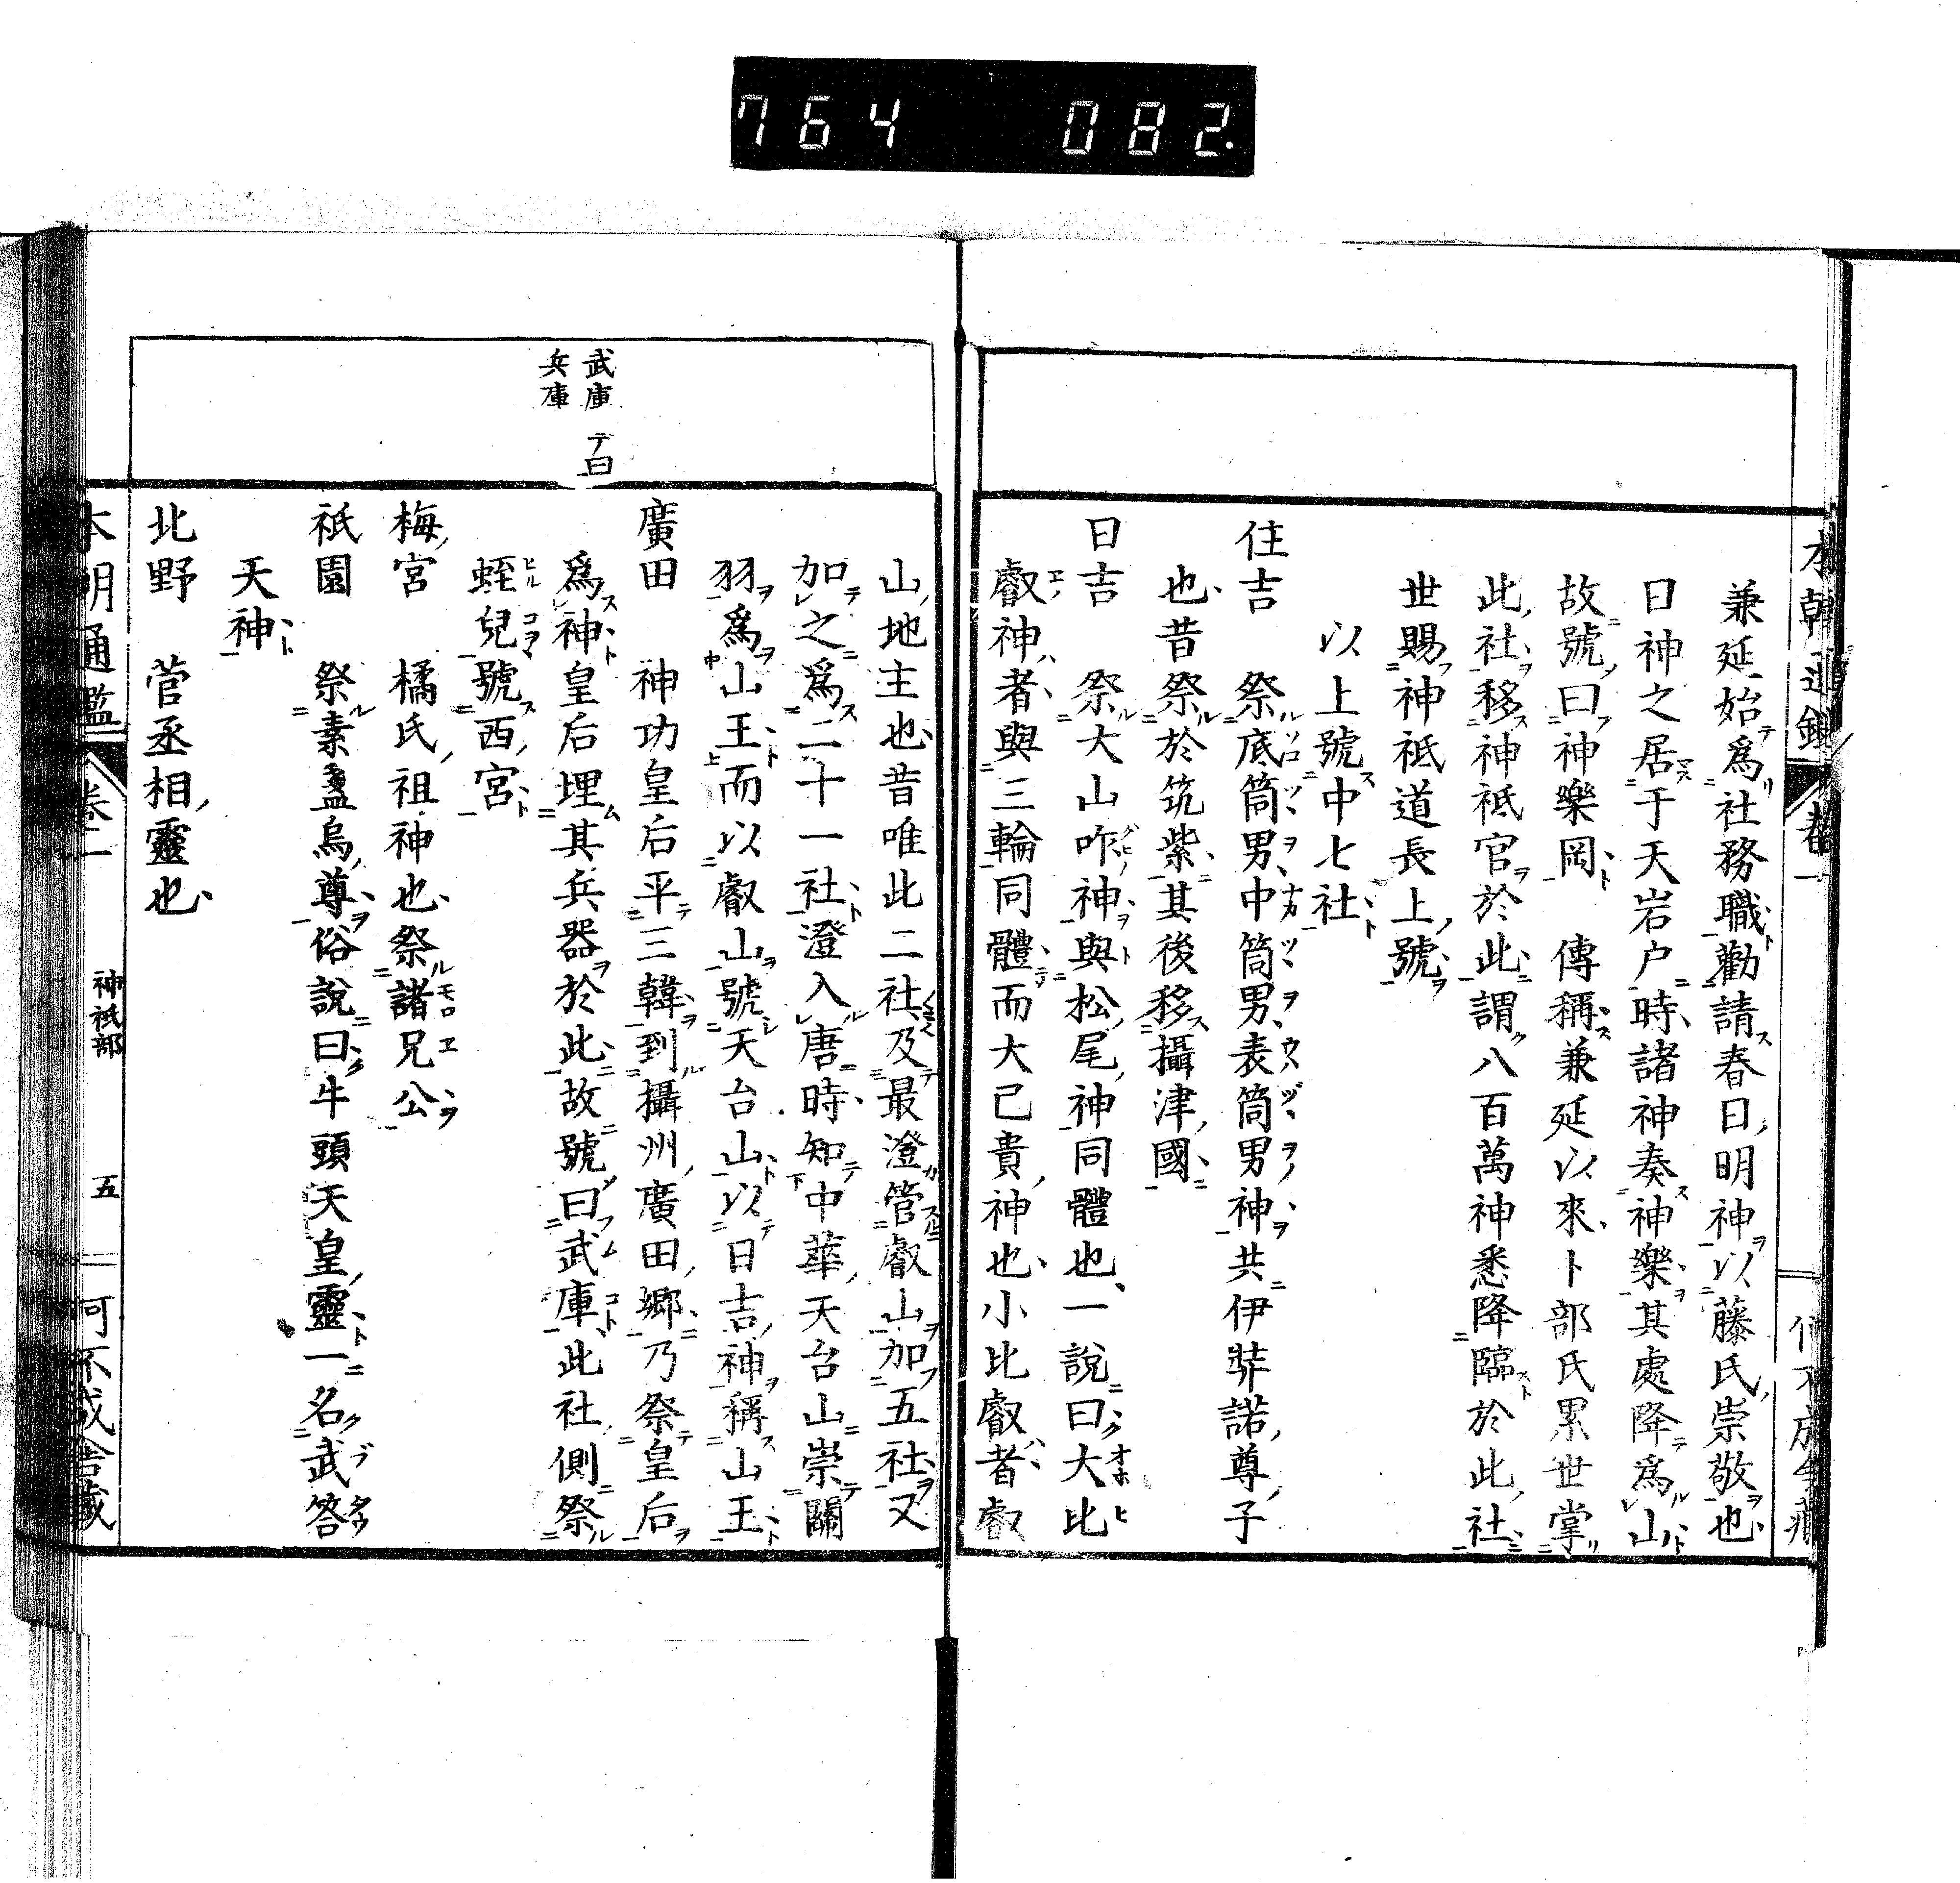 764 082.
兼延始爲社務職勸請春日明神以藤氏崇敬也
日神之居于天岩户時諸神奏神樂其處降爲山
故號曰神樂岡　傳稱兼延以來卜部氏累世掌
此社移神祇官於此謂八百萬神悉降臨於此社
世賜神祇道長上號
以上號中七社
住吉　祭底筒男中筒男表筒男神共伊弉諾尊子
也昔祭於筑紫其後移攝津國
日吉　祭大山咋神與松尾神同體也一説曰大比
叡神者與三輪同體而大己貴神也小比叡者叡
山地主也昔唯此二社及最澄管叡山加五社又
加之爲二十一社澄入唐時知中華天台山崇關
羽爲山王而以叡山號天台山以日吉神稱山王
廣田　神功皇后平三韓到攝州廣田鄉乃祭皇后
爲神皇后埋其兵器於此故號曰武庫此社側祭
蛭兒號西宮
梅宮　橘氏祖神也祭諸兄公
祇園　祭素盞烏尊俗說曰牛頭天皇靈一名武答
天神
北野　菅丞相靈也
武庫　デ曰
兵庫
本朝通鑑　卷一　神祇部　五